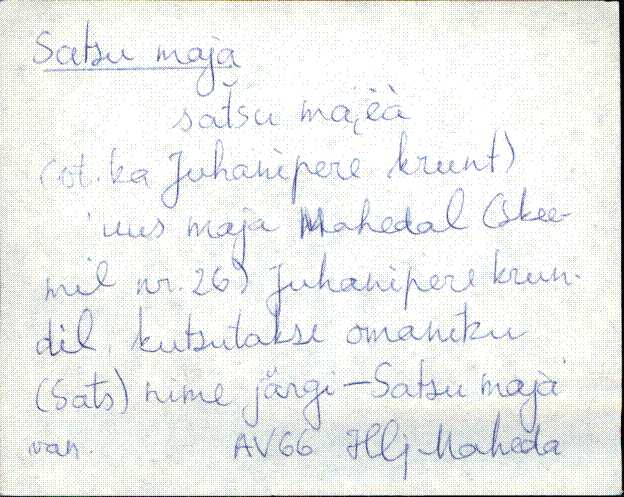 Satsu maja
satsu majeà
(vt. ka Juhanipere krunt)
uus maja Mahedal (skee-
mil nr. 26) Juhanipere krun-
dil, kutsutakse omaniku
(Sats) nime järgi – Satsu maja
van. AV66 Hlj Maheda